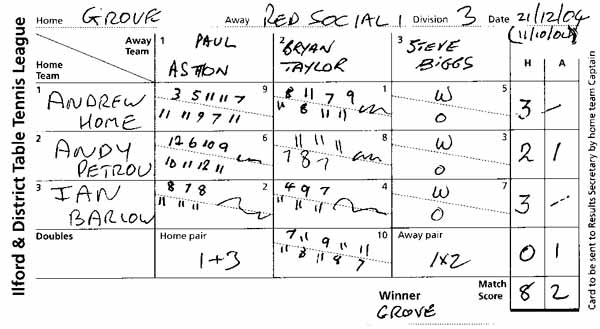 Ilford & District Table Tennis League
Home GROVE Away RED SOCIAL 1 Division 3 Date 21/12/04
(11/10/04)
Away Team
Home Team
1 PAUL ASHTON
2 BRYAN TAYLOR
3 STEVE BIGGS
H A
1 ANDREW HOME
3 5 11 11 7 9
11 11 9 7 11
8 11 7 9 1
11 8 11 11
W 5
O
3 –
2 ANDY PETROU
12 6 10 9 6
10 11 12 11
11 11 11 8
7 8 7
W 3
O
2 1
3 IAN BARLOW
8 7 8 2
11 11 11
4 9 7 4
11 11 11
W 7
O
3 –
Doubles
Home pair
1+3
7 11 9 11 11 10
11 8 11 8 7
Away pair
1x2
0 1
Winner GROVE
Match Score 8 2
Card to be sent to Results Secretary by home team Captain